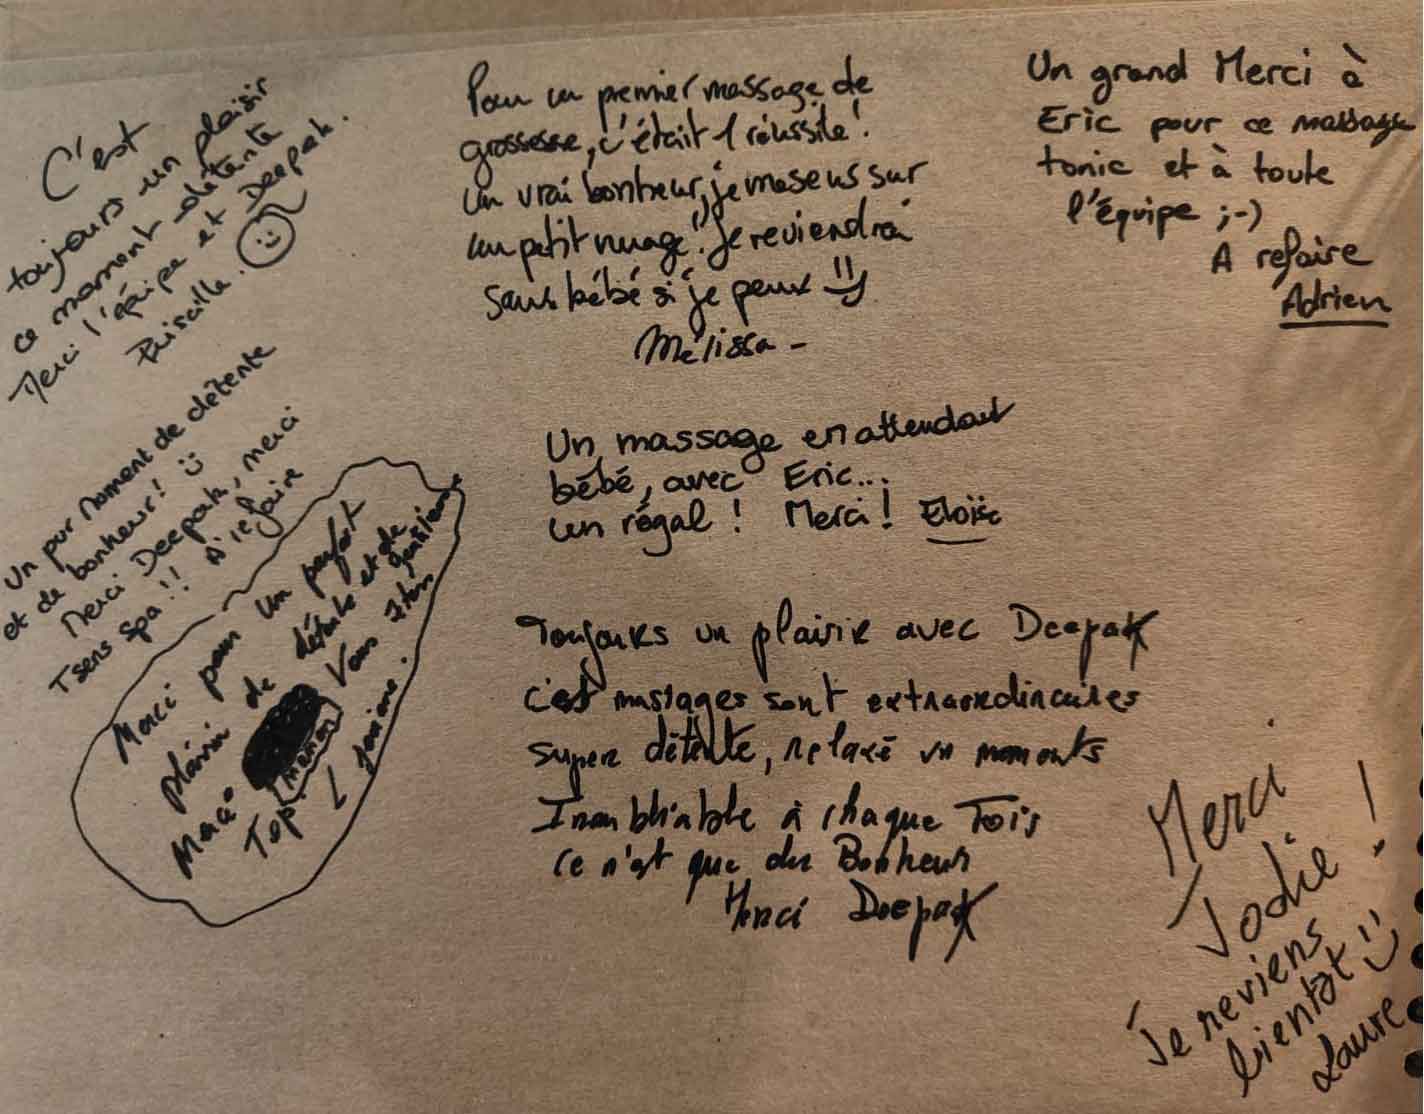 C'est
toujours un plaisir
ce moment détente
Merci l'équipe et Deepak.
Priscilla.
Un pur moment de détente
et de bonheur!
Merci Deepak, merci
Tsens spa !! A refaire
Merci pour un parfait
plaisir de détente et de
Merci Vous êtes
Top! Janine.
Pour un premier massage de
grossesse, c'était 1 réussite!
Un vrai bonheur, je me sens sur
un petit nuage! Je reviendrai
sans bébé si je peux
Mélissa -
Un massage en attendant
bébé, avec Eric...
un régal ! Merci ! Eloïse
Toujours un plaisir avec Deepak
c'est massages sont extraordinaires
super détente, relaxé un moments
Inoubliable à chaque Fois
Ce n'est que du Bonheur
Merci Deepak
Un grand Merci à
Eric pour ce massage
tonic et à toute
l'équipe ;-)
A refaire
Adrien
Merci
Jodie !
Je reviens
bientôt
Laure